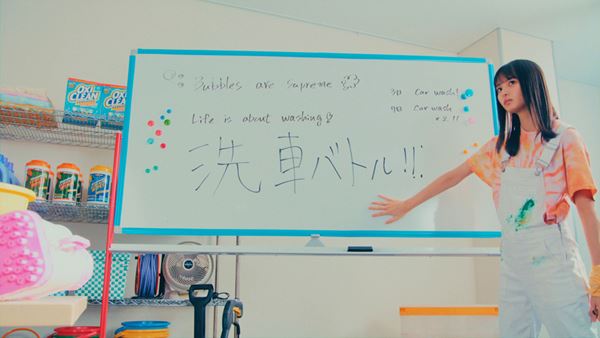 OXI CLEAN
OXI CLEAN
Bubbles are supreme
Life is about washing
3日 Car wash!
9日 Car wash
×2!!
洗車バトル!!!